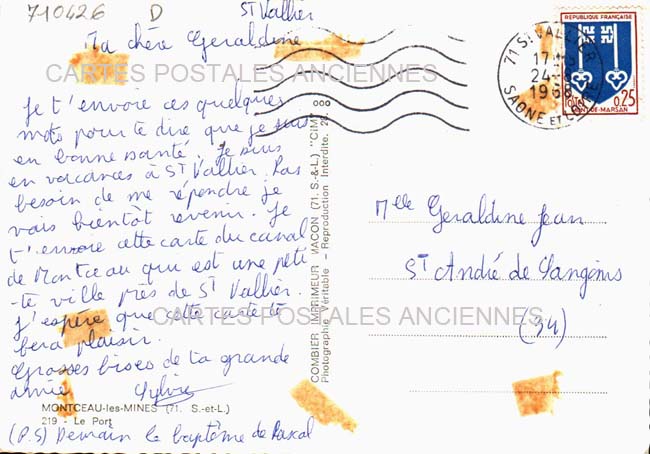 710426 D
St Vallier
Ma chère Geraldine
CARTES POSTALES ANCIENNES
Je t'envoie ces quelques
mots pour te dire que je suis
en bonne santé. Je suis
en vacances à St Vallier. Pas
besoin de me répondre je
vais bientôt revenir. Je
t'envoie cette carte du canal
de Montceau qui est une peti
-te ville près de St Vallier.
J'espère que cette carte te
fera plaisir.
Grosses bises de ta grande
amie Sylvie
MONTCEAU-les-MINES (71. S.-et-L.)
219 - Le Port
(P.S) Demain le baptême de Pascal
COMBIER IMPRIMEUR MACON (71. S.-&-L.) "CIM"
Photographie Véritable - Reproduction Interdite.
71 ST VALLIER
24-8
1968
SAONE ET LOIRE
REPUBLIQUE FRANÇAISE
0,25
MONT-DE-MARSAN
Mlle Geraldine Jean
St André de Sangonis
(34)
CARTES POSTALES ANCIENNES